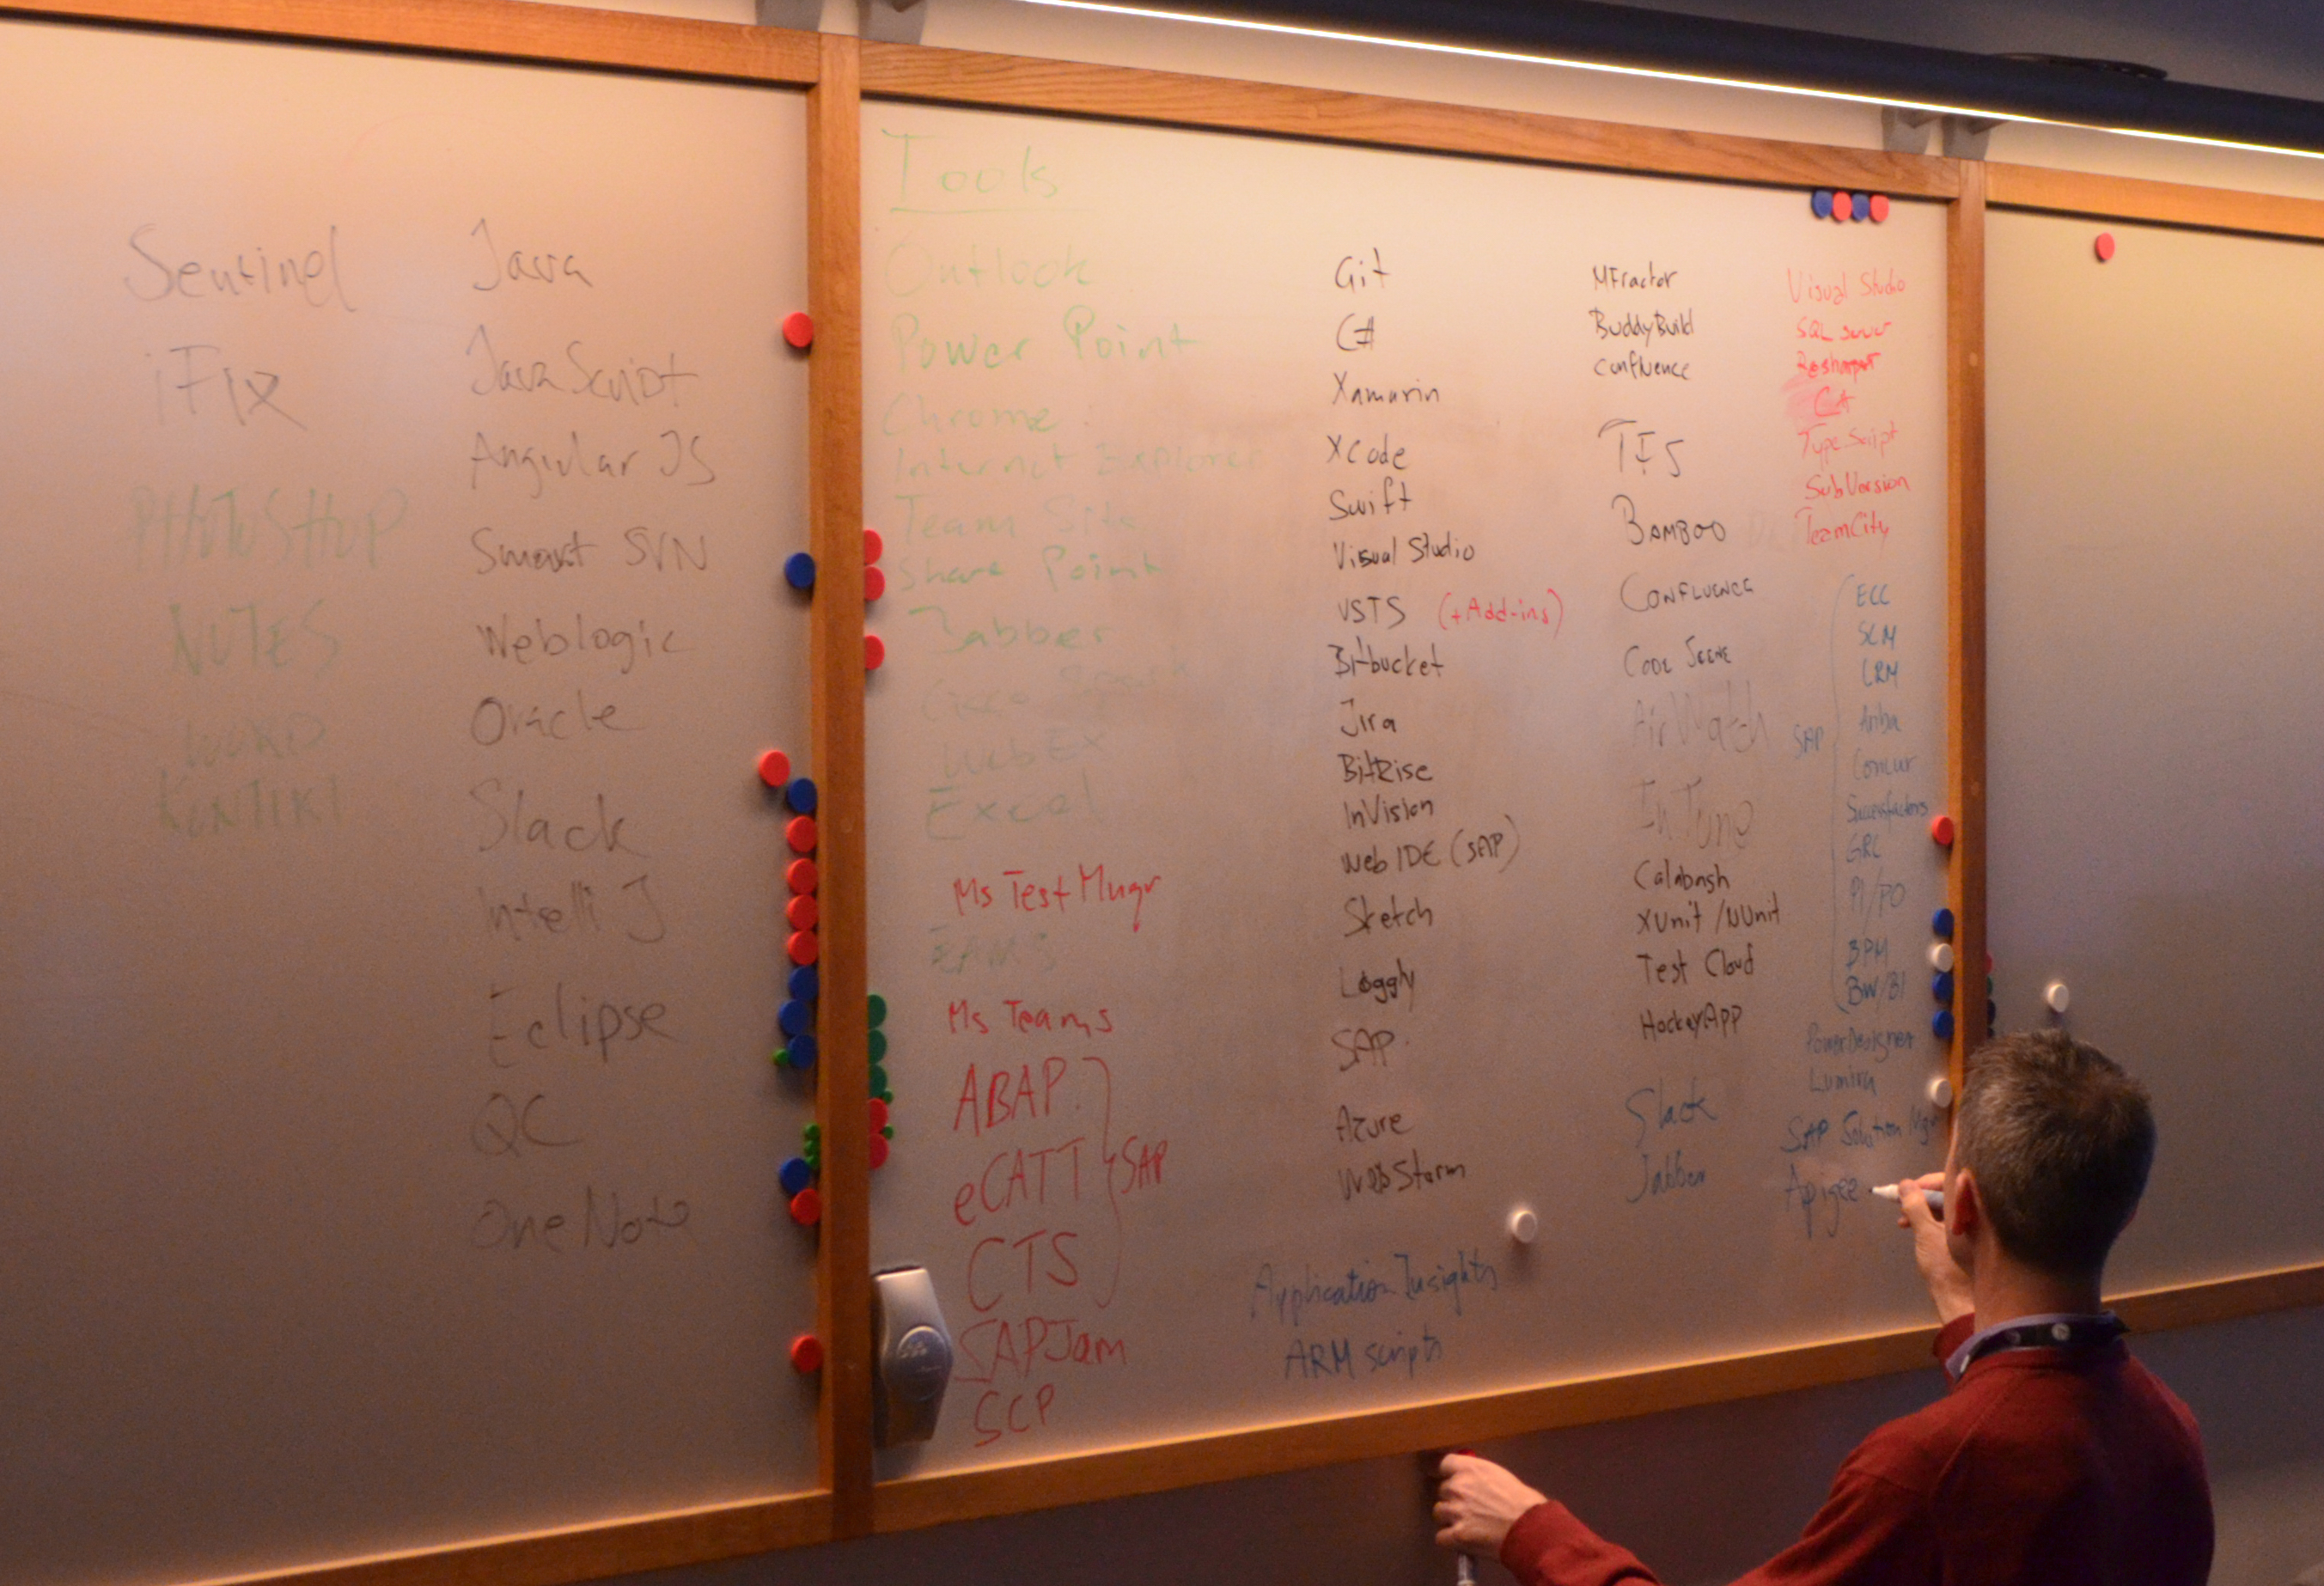 Sentinel
iFix
PHOTOSHOP
NOTES
WORD
KONTIKI
Java
JavaScript
Angular JS
Smart SVN
Weblogic
Oracle
Slack
Intelli J
Eclipse
QC
OneNote
Tools
Outlook
Power Point
Chrome
Internet Explorer
Team Site
Share Point
Jabber
Cisco Spark
WebEx
Excel
Ms Test Mngr
Ms Teams
ABAP
eCATT
SAP
CTS
SAPJam
SCP
Git
C#
Xamarin
XCode
Swift
Visual Studio
VSTS (+Add-ins)
Bitbucket
Jira
BitRise
InVision
Web IDE (SAP)
Sketch
Loggly
SAP
Azure
WebStorm
Application Insights
ARM scripts
MFractor
BuddyBuild
Confluence
TFS
BAMBOO
CONFLUENCE
CODE SCENE
AirWatch
InTune
Calabash
XUnit / NUnit
Test Cloud
HockeyApp
Slack
Jabber
Visual Studio
SQL server
Resharper
C#
TypeScript
SubVersion
TeamCity
SAP
ECC
SCM
CRM
Ariba
Concur
Successfactors
GRC
PI/PO
BPM
BW/BI
PowerDesigner
Lumira
SAP Solution Mgr
Apigee